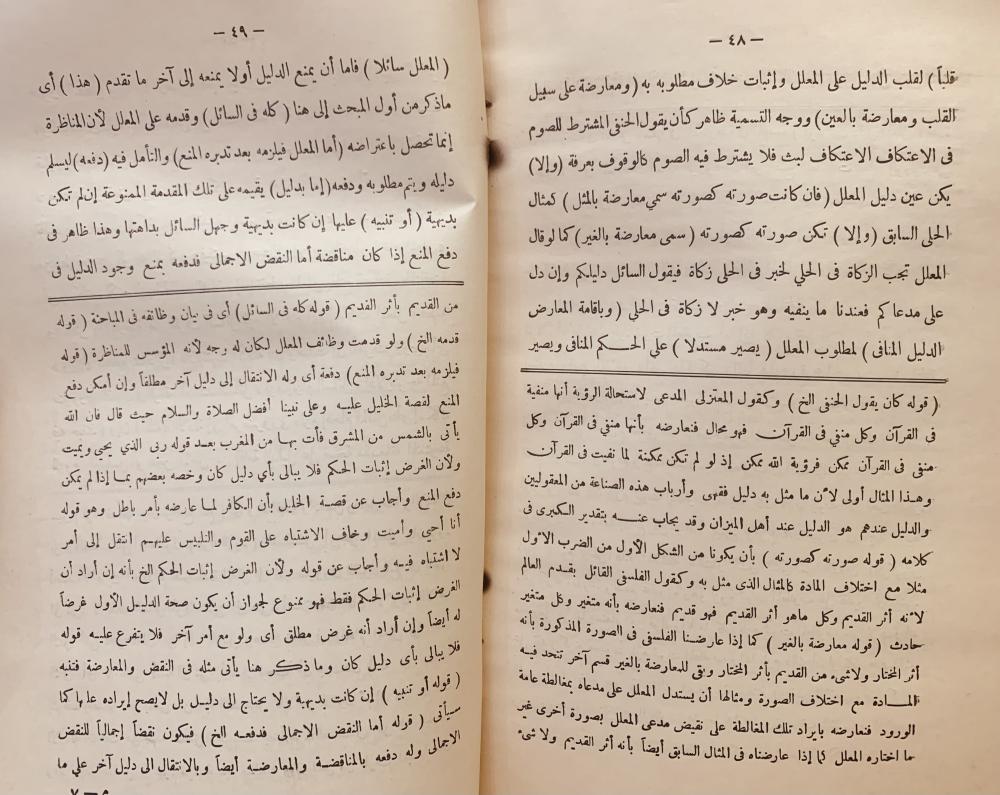 — ٤٨ —
قلباً ) لقلب الدليل على المعلل وإثبات خلاف مطلوبه به ( ومعارضة على سبيل
القلب ومعارضة بالعين ) ووجه التسمية ظاهر كأن يقول الحنفى المشترط للصوم
فى الاعتكاف الاعتكاف لبث فلا يشترط فيه الصوم كالوقوف بعرفة ( وإلا )
يكن عين دليل المعلل ( فان كانت صورته كصورته سمي معارضة بالمثل ) كمثال
الحلى السابق ( وإلا ) تكن صورته كصورته ( سمى معارضة بالغير ) كما لو قال
المعلل تجب الزكاة فى الحلي لخبر فى الحلى زكاة فيقول السائل دليلكم وإن دل
على مدعاكم فعندنا ما ينفيه وهو خبر لا زكاة فى الحلي ( وباقامة المعارض
الدليل المنافى ) لمطلوب المعلل ( يصير مستدلا ) على الحكم المنافى ويصير
( قوله كان يقول الحنفى الخ ) وكقول المعتزلى المدعى لاستحالة الرؤية أنها منفية
فى القرآن وكل منفي فى القرآن فهو محال فنعارضه بأنها منفي فى القرآن وكل
منفى فى القرآن ممكن فرؤية الله ممكن إذ لو لم تكن ممكنة لما نفيت فى القرآن
وهذا المثال أولى لأن ما مثل به دليل فقهى وأرباب هذه الصناعة من المعقوليين
والدليل عندهم هو الدليل عند أهل الميزان وقد يجاب عنه بتقدير الكبرى فى
كلامه ( قوله صورته كصورته ) بأن يكونا من الشكل الأول من الضرب الأول
مثلا مع اختلاف المادة كالمثال الذى مثل به وكقول الفلسفى القائل بقدم العالم
لأنه أثر القديم وكل ماهو أثر القديم فهو قديم فنعارضه بأنه متغير وكل متغير
حادث ( قوله معارضة بالغير ) كما إذا عارضنا الفلسفى فى الصورة المذكورة بأنه
أثر المختار ولاشىء من القديم بأثر المختار وبقى للمعارضة بالغير قسم آخر تتحد فيه
المادة مع اختلاف الصورة ومثالها أن يستدل المعلل على مدعاه بمغالطة عامة
الورود فنعارضه بايراد تلك المغالطة على نقيض مدعى المعلل بصورة أخرى غير
ما اختاره المعلل كما إذا عارضناه فى المثال السابق أيضاً بأنه أثر القديم ولا شىء
— ٤٩ —
( المعلل سائلا ) فاما أن يمنع الدليل أولا يمنعه إلى آخر ما تقدم ( هذا ) أى
ماذكر من أول المبحث إلى هنا ( كله فى السائل ) وقدمه على المعلل لأن المناظرة
إنما تحصل باعتراضه ( أما المعلل فيلزمه بعد تدبره المنع ) والتأمل فيه ( دفعه ) ليسلم
دليله ويتم مطلوبه ودفعه ( إما بدليل ) يقيمه على تلك المقدمة الممنوعة إن لم تكن
بديهية ( أو تنبيه ) عليها إن كانت بديهية وجهل السائل بداهتها وهذا ظاهر فى
دفع المنع إذا كان مناقضة أما النقض الاجمالى فدفعه بمنع وجود الدليل فى
من القديم بأثر القديم ( قوله كله فى السائل ) أى فى بيان وظائفه فى المباحثة ( قوله
قدمه الخ ) ولو قدمت وظائف المعلل لكان له وجه لأنه المؤسس للمناظرة ( قوله
فيلزمه بعد تدبره المنع ) دفعة أى وله الانتقال إلى دليل آخر مطلقاً وإن أمكن دفع
المنع لقصة الخليل عليه وعلى نبينا أفضل الصلاة والسلام حيث قال فان الله
يأتى بالشمس من المشرق فأت بها من المغرب بعد قوله ربى الذي يحيى ويميت
ولأن الغرض إثبات الحكم فلا يبالى بأي دليل كان وخصه بعضهم بما إذا لم يمكن
دفع المنع وأجاب عن قصة الخليل بأن الكافر لما عارضه بأمر باطل وهو قوله
أنا أحيي وأميت وخاف الاشتباه على القوم والتلبيس عليهم انتقل إلى أمر
لا اشتباه فيه وأجاب عن قوله ولأن الغرض إثبات الحكم الخ بأنه إن أراد أن
الغرض إثبات الحكم فقط فهو ممنوع لجواز أن يكون صحة الدليل الأول غرضاً
له أيضاً وإن أراد أنه غرض مطلق أى ولو مع أمر آخر فلا يتفرع عليه قوله
فلا يبالى بأى دليل كان وما ذكر هنا يأتى مثله فى النقض والمعارضة فتنبه
( قوله أو تنبيه ) إن كانت بديهية ولا يحتاج الى دليل بل لايصح إيراده عليها كما
سيأتى ( قوله أما النقض الاجمالى فدفعه الخ ) فيكون نقضاً إجمالياً للنقض
الاجمالى وله دفعه بالمناقضة والمعارضة أيضاً وبالانتقال الى دليل آخر علي ما